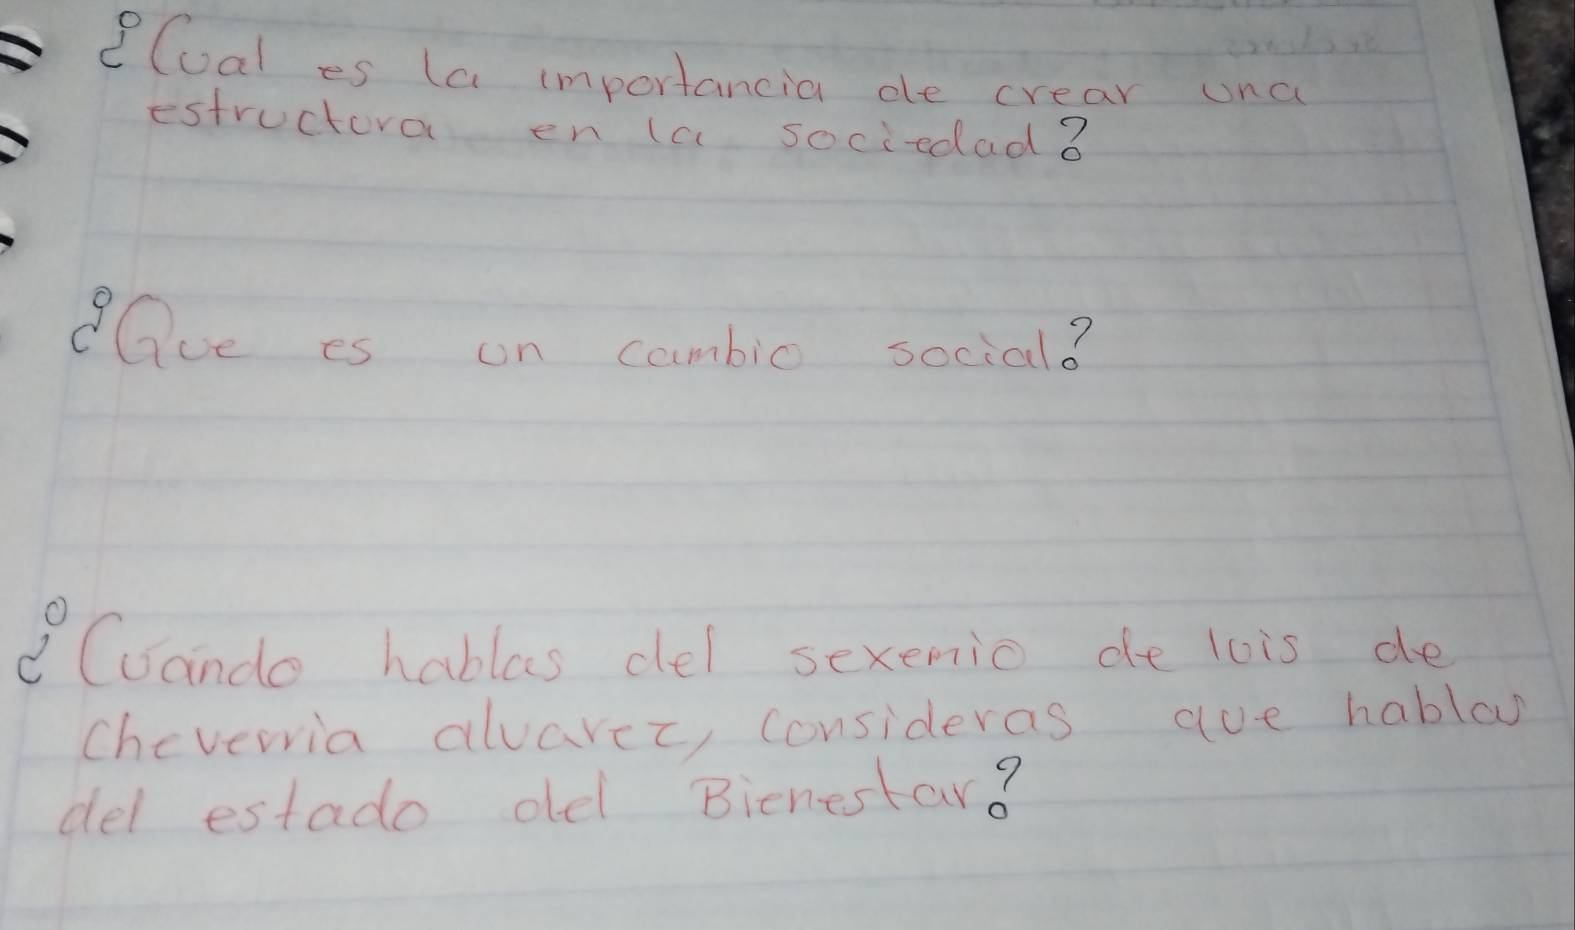 ¿Cual es la importancia de crear una
estructura en la sociedad?
¿Que es un cambio social?
¿Cuándo hablas del sexenio de luis de
cheverria alvarez, consideras que hablas
del estado del Bienestar?